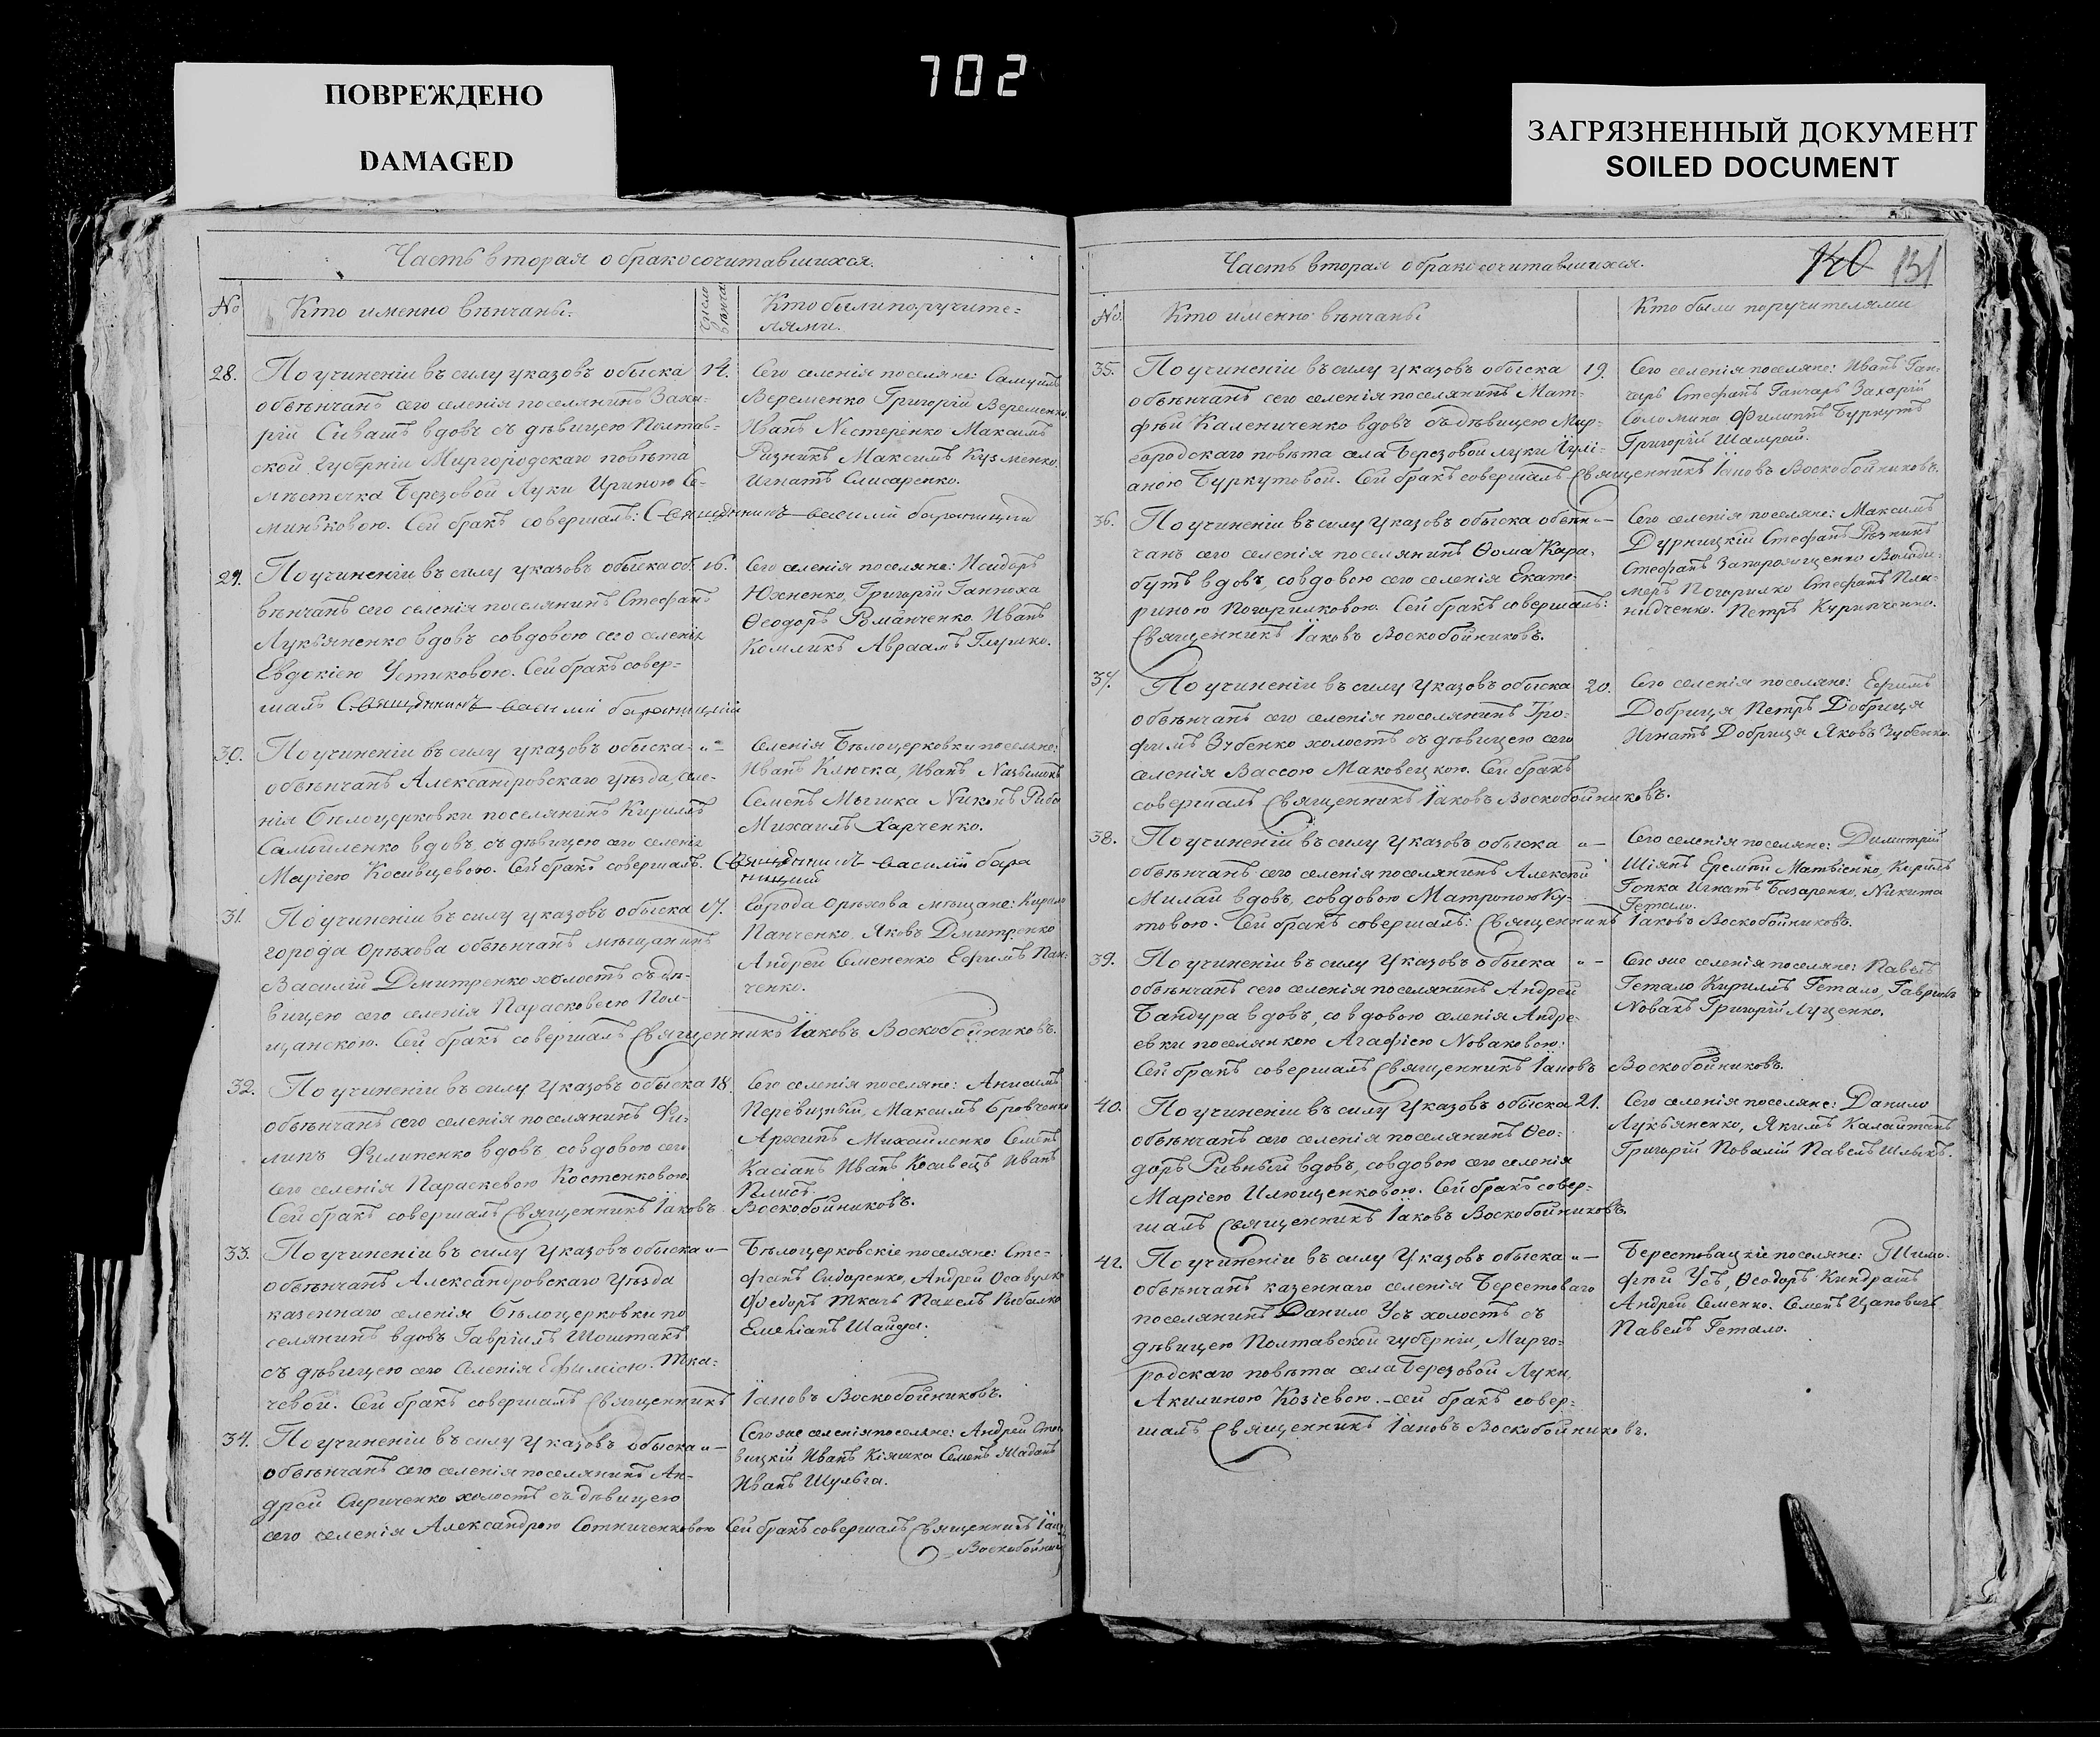 702
ПОВРЕЖДЕНО
DAMAGED
ЗАГРЯЗНЕННЫЙ ДОКУМЕНТ
SOILED DOCUMENT
Часть вторая о бракосочитавшихся.
№
Кто именно вѣнчаны.
Число
Кто были поручите=
лями.
28.
По учиненіи въ силу указовъ обыска
обвѣнчанъ сего селенія поселянинъ Заха-
рій Сивашъ вдовъ съ дѣвицею Полтав-
ской Губерніи Миргородскаго повѣта
мѣстечка Березовой Луки Ириною Се-
миньковою. Сей бракъ совершалъ: Священникъ василій
14.
Сего селенія поселяне: Самуилъ
Веременко Григорій Веременко,
Иванъ Нестеренко Максимъ
Ризникъ Максимъ Кузменко.
Игнатъ Слисаренко.
29.
По учиненіи въ силу указовъ обыска об.
вѣнчанъ сего селенія поселянинъ Стефанъ
Лукьяненко вдовъ совдовою сего селенія
Евдокіею Устиковою. Сей бракъ совер=
шалъ Священникъ василій
16.
Сего селенія поселяне: Исидоръ
Юхненко, Григорій Ганноха
Ѳеодоръ Романченко Иванъ
Комликъ Авраамъ Глушко.
30.
По учиненіи въ силу указовъ обыска
обвѣнчанъ Александровскаго уѣзда, селе-
нія Бѣлоцерковки поселянинъ Кирилъ
Самойленко вдовъ, съ дѣвицею сего селенія
Маріею Косивцевою. Сей бракъ совершалъ. Священникъ василій
„ —
Селенія Бѣлоцерковки поселяне:
Иванъ Ключка, Иванъ
Семенъ Мышка Никонъ Риба
Михаилъ Харченко.
31.
По учиненіи въ силу указовъ обыска
города Орѣхова обвѣнчанъ мѣщанинъ
Василій Дмитренко холостъ съ дѣ-
вицею сего селенія Парасковеею Пол-
щанскою. Сей бракъ совершалъ Священникъ Іаковъ Воскобойниковъ.
17.
Города Орѣхова мѣщане: Кирило
Панченко Яковъ Дмитренко
Андрей Семененко Ефимъ Пан-
ченко.
32.
По учиненіи въ силу указовъ обыска
обвѣнчанъ сего селенія поселянинъ Фи-
липъ Филипенко вдовъ, совдовою сего
сего селенія Параскевою Костенковою.
Сей бракъ совершалъ Священникъ Іаковъ Воскобойниковъ.
18.
Сего селенія поселяне: Анисимъ
Перевизный, Максимъ Бровченко
Архипъ Михайленко Семенъ
Касіанъ Иванъ Косивецъ Иванъ
33.
По учиненіи въ силу указовъ обыска
обвѣнчанъ Александровскаго уѣзда
казеннаго селенія Бѣлоцерковки по
селянинъ вдовъ Гавріилъ Шоштакъ
съ дѣвицею сего селенія Ефиміею Тка-
чевой. Сей бракъ совершалъ Священникъ Іаковъ Воскобойниковъ.
„ —
Бѣлоцерковскіе поселяне: Сте-
фанъ Сидоренко, Андрей Осавулко
Федоръ Ткачъ Павелъ Рибалко
Емеліанъ Шайда.
34.
По учиненіи въ силу указовъ обыска
обвѣнчанъ сего селенія поселянинъ Ан-
дрей Сириченко холостъ съ дѣвицею
сего селенія Александрою Сотниченковою Сей бракъ совершалъ Священникъ
„ —
Сего же селенія поселяне: Андрей
Иванъ Кіяшка Семенъ Шаданъ
Иванъ Шульга.
Часть вторая о бракосочитавшихся.
140 131
№.
Кто именно вѣнчаны
Кто были поручителями
35.
По учиненіи въ силу указовъ обыска
обвѣнчанъ сего селенія поселянинъ Мат-
фѣй Калениченко вдовъ съ дѣвицею Мир-
городскаго повѣта села Березовой луки Іулі-
аною Буркутовой. Сей бракъ совершалъ Священникъ Іаковъ Воскобойниковъ.
19.
Сего селенія поселяне: Иванъ Ган-
чаръ Стефанъ Ганчаръ Захарій
Соломина Филиппъ Буркутъ
Григорій Шамрай.
36.
По учиненіи въ силу указовъ обыска обвѣн-
чанъ сего селенія поселянинъ Ѳома Кара-
бутъ вдовъ, совдовою сего селенія Екате-
риною Погорилковою. Сей бракъ совершалъ:
Священникъ Іаковъ Воскобойниковъ.
Сего селенія поселяне: Максимъ
Дурницкій Стефанъ Рѣзникъ
Стефанъ Запорожченко Володи-
меръ Погорилко Стефанъ Пли-
Петръ Курипченко.
37.
По учиненіи въ силу указовъ обыска
обвѣнчанъ сего селенія поселянинъ Тро-
фимъ Зубенко холостъ съ дѣвицею сего
селенія Вассою Маковецкою. Сей бракъ
совершалъ Священникъ Іаковъ Воскобойниковъ.
20.
Сего селенія поселяне: Ефимъ
Добриця Петръ Добриця
Игнатъ Добриця Яковъ Зубенко.
38.
По учиненіи въ силу указовъ обыска
обвѣнчанъ сего селенія поселянинъ Алексѣй
Милай вдовъ, совдовою Матроною Ку-
товою. Сей бракъ совершалъ: Священникъ Іаковъ Воскобойниковъ.
„ —
Сего селенія поселяне: Димитрій
Шіянъ Еремѣй Матвіенко, Кирилъ
Гопка Игнатъ Базаренко, Никита
Гетало.
39.
По учиненіи въ силу указовъ обыска
обвѣнчанъ сего селенія поселянинъ Андрей
Бандура вдовъ, совдовою селенія Андре-
евки поселянкою Агафіею Новаковою:
Сей бракъ совершалъ Священникъ Іаковъ Воскобойниковъ.
„ —
Сего же селенія поселяне: Павелъ
Гетало Кирилъ Гетало, Гаврилъ
Новакъ Григорій Луценко.
40.
По учиненіи въ силу указовъ обыска
обвѣнчанъ сего селенія поселянинъ Ѳео-
доръ Ривный вдовъ, совдовою сего селенія
Маріею Илющенковою. Сей бракъ совер-
шалъ Священникъ Іаковъ Воскобойниковъ.
21.
Сего селенія поселяне: Данило
Лукьяненко, Якимъ Калайтанъ
Григорій Повалій Павелъ
41.
По учиненіи въ силу указовъ обыска
обвѣнчанъ казеннаго селенія Берестоваго
поселянинъ Данило Усъ холостъ съ
дѣвицею Полтавской губерніи, Мирго-
родскаго повѣта села Березовой Луки,
Акилиною Козіевою. Сей бракъ совер-
шалъ Священникъ Іаковъ Воскобойниковъ.
„ —
Берестовацкіе поселяне: Тимо-
фѣй Усъ, Ѳеодоръ Киндратъ
Андрей Семенко. Семенъ Цаповичъ
Павелъ Гетало.